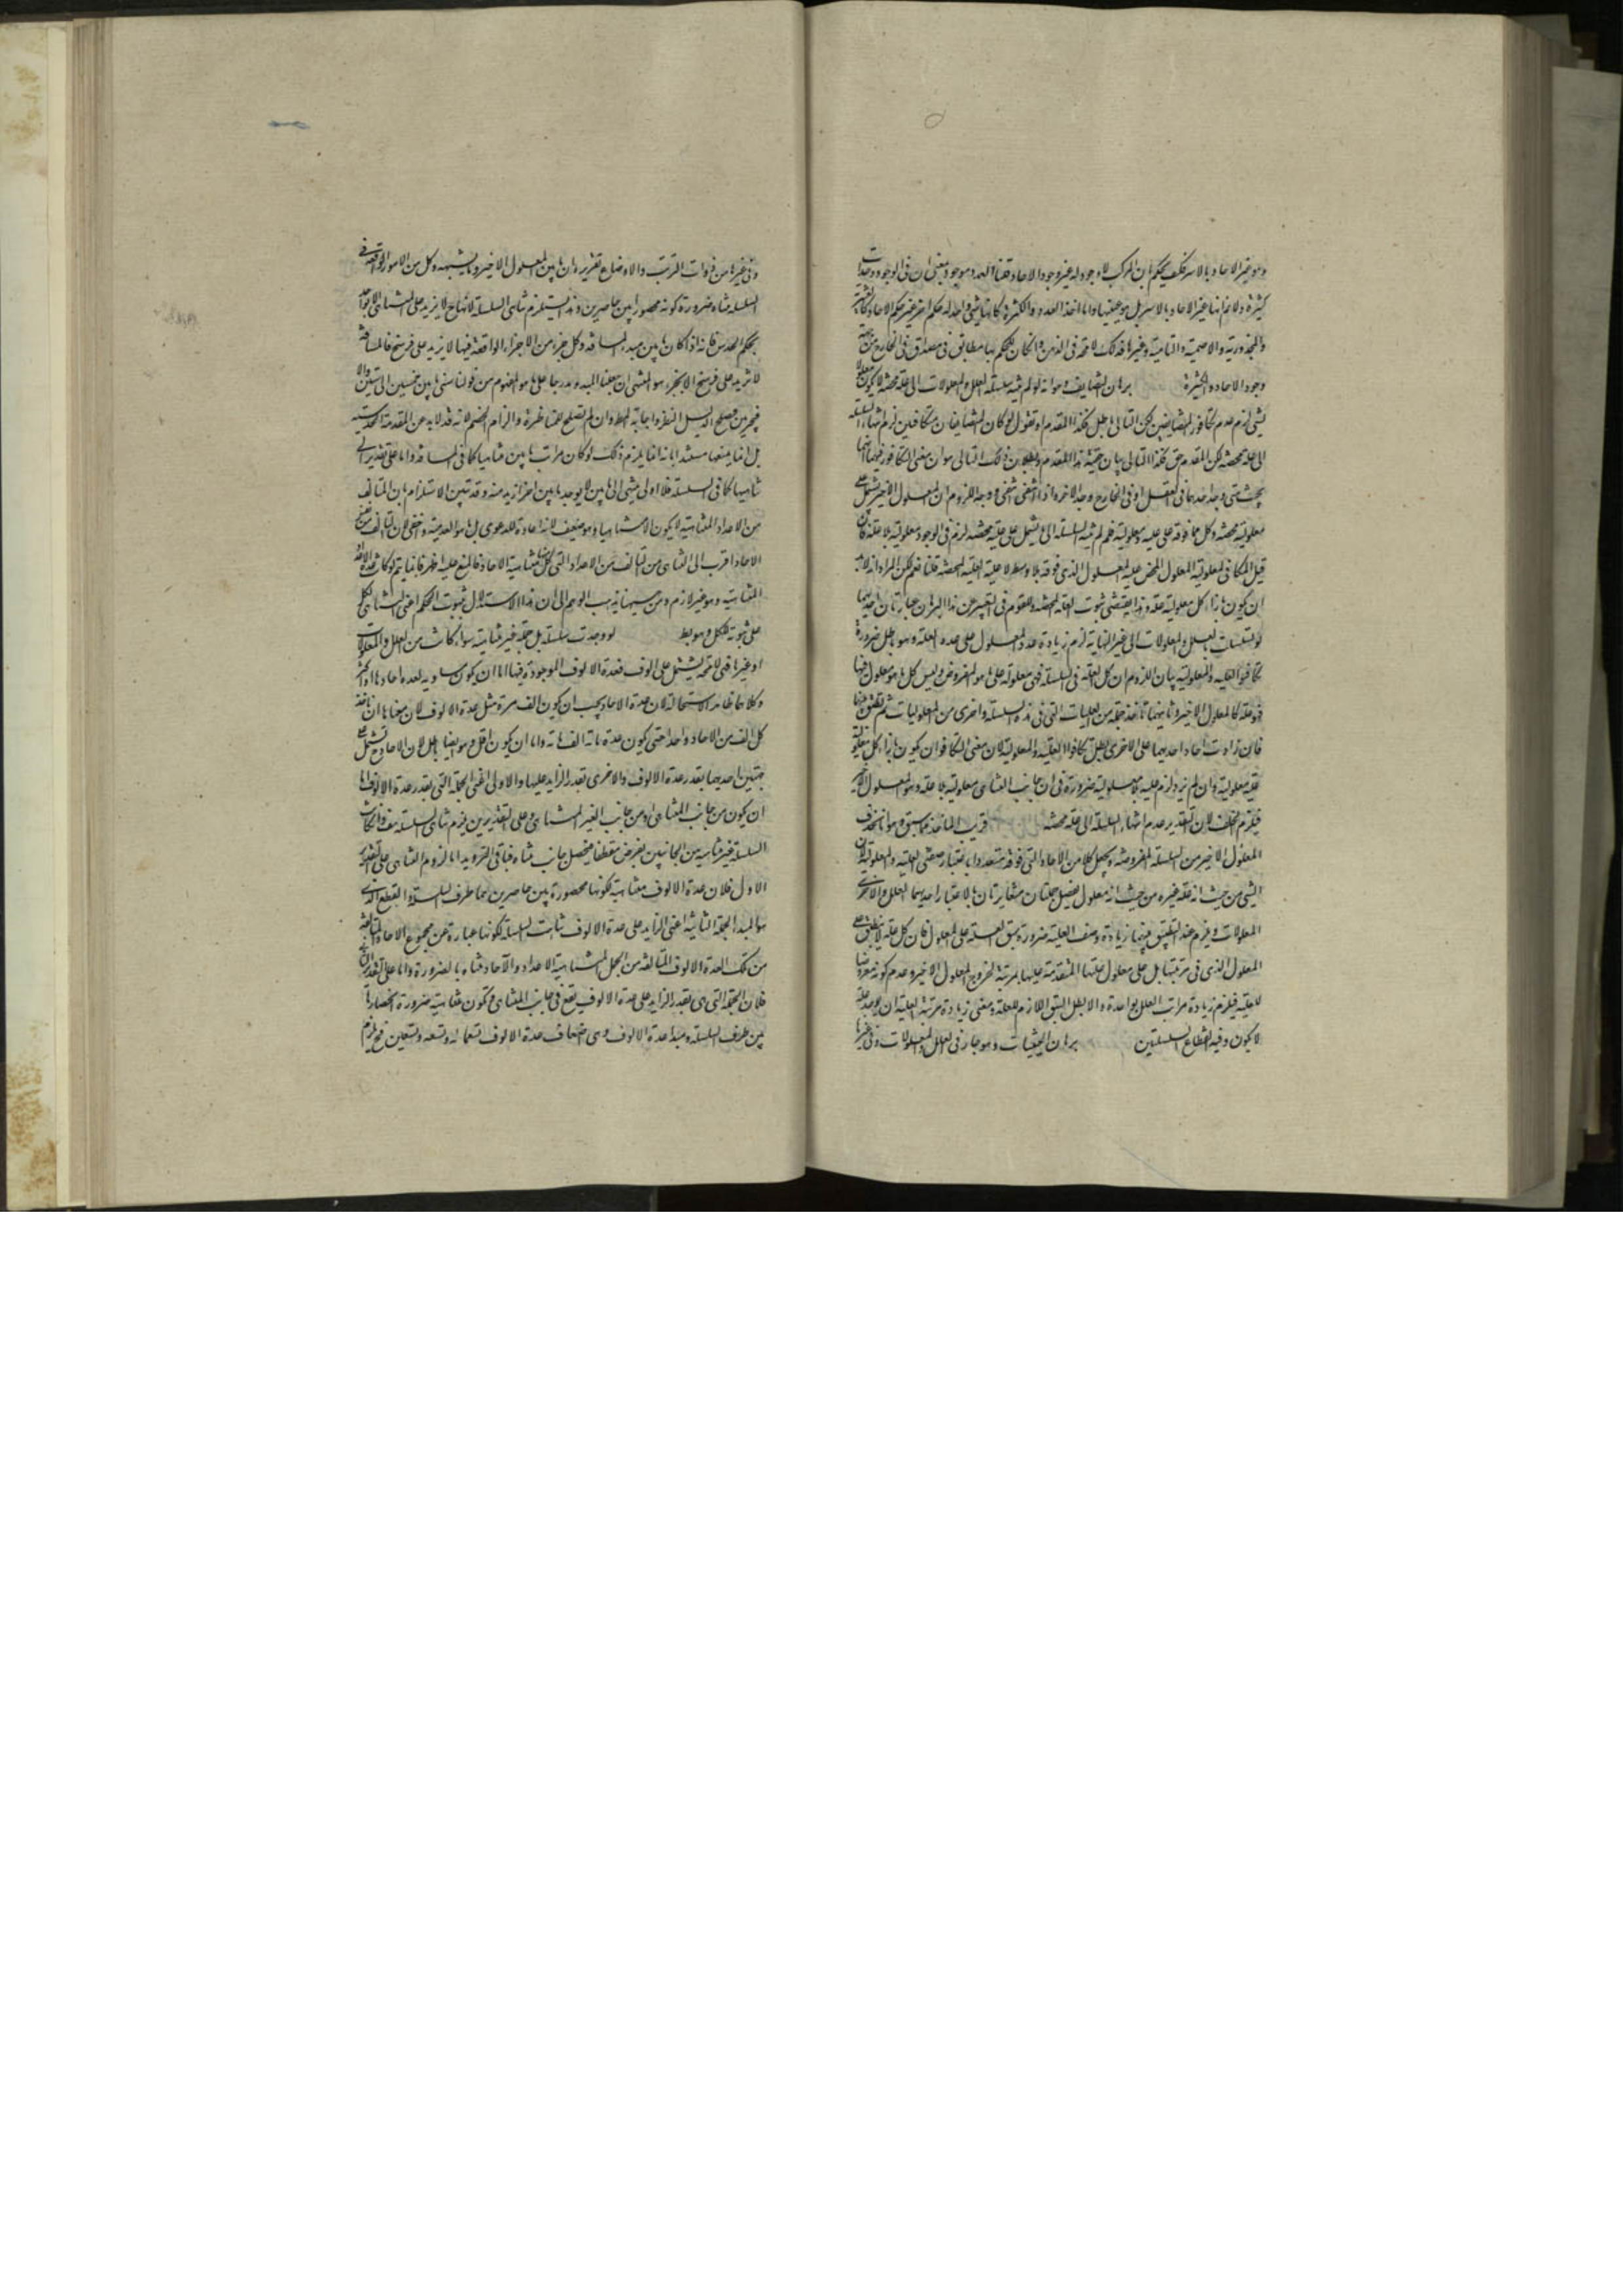 وهو غير الاحاد بالاسر فكيف يحكم بان المركب لا وجود له غير وجود الاحاد قلنا العدد موجود بمعنى ان في الوجود وحدات
كثيرة ولا نم انها غير الاحاد بالاسر بل هو عينها واما اخذ العدد والكثرة كانها شيء واحد له حكم اخر غير حكم الاحاد
والمجذورية والاصمية والتامية وغيرها فذلك لاحقة في الذهن وان كان للحكم بها مطابق في مصداق في الخارج من جهة
وجود الاحاد والكثيرة برهان التضايف وهو انه لو لم ينته سلسلة العلل والمعلولات الى علة محضة لا يكون معلولا
لشيء لزم عدم تكافؤ المتضايفين لكن التالي باطل فكذا المقدم او نقول لو كان المتضايفان متكافئين لزم انتهاء السلسلة
الى علة محضة لكن المقدم حق فكذا التالي بيان حقية هذا المقدم وبطلان ذلك التالي هو ان معنى التكافؤ فيهما انهما
بحيث متى وجد احدهما في العقل او في الخارج وجد الاخر واذا انتفى انتفى ووجه اللزوم ان المعلول الاخير يشتمل على
معلولية محضة وكل مما فوقه على علية ومعلولية فلو لم ينته السلسلة الى ما يشتمل على علية محضة لزم في الوجود معلولية بلا علية فان
قيل المكافي لمعلولية المعلول المحض علية المعلول الذي فوقه بلا وسط لا علية العلية المحضة قلنا نعم لكن المراد انه لابد
ان يكون بازاء كل معلولية علية وهذا يقتضي ثبوت العلة المحضة وللقوم في التعبير عن هذا البرهان عبارتان احديهما
لو تسلسلت العلل والمعلولات الى غير النهاية لزم زيادة عدد المعلول على عدد العلة وهو باطل ضرورة
تكافؤ العلية والمعلولية بيان اللزوم ان كل علة في السلسلة فهي معلولة على ما هو المفروض وليس كل ما هو معلول فيها
فهو علة كالمعلول الاخير وثانيهما ناخذ جملة من العليات التي في هذه السلسلة واخرى من المعلوليات ثم نطبق بينهما
فان زادت احاد احديهما على الاخرى بطل تكافؤ العلية والمعلولية لان معنى التكافؤ ان يكون بازاء كل معلولية
علية وان لم يزد لزم علية بلا معلولية ضرورة ان في جانب التناهي معلولية بلا علية وهو المعلول الاخير
فيلزم الخلف لان التقدير عدم انتهاء السلسلة الى علة محضة قريب الماخذ مما سبق وهو انا نحذف
المعلول الاخير من السلسلة المفروضة ونجعل كلا من الاحاد التي فوقه متعددا باعتبار وصفي العلية والمعلولية لان
الشيء من حيث انه علة غيره من حيث انه معلول فيحصل جملتان متغايرتان بالاعتبار احديهما العلل والاخرى
المعلولات ويلزم عند التطبيق بينهما زيادة وصف العلية ضرورة سبق العلة على المعلول فان كل علة لا ينطبق على
المعلول الذي في مرتبتها بل على معلول علتها المتقدمة عليها بمرتبة لخروج المعلول الاخير وعدم كونه معروضا
للعلية فيلزم زيادة مراتب العلل بواحدة والا بطل السبق اللازم للعلة ومعنى زيادة مرتبة العلية ان يوجد علة
لا يكون وفيه انقطاع السلسلتين برهان الحيثيات وهو جار في العلل والمعلولات وفي غيرها
وفي غيرها من ذوات الترتب والاوضاع تقريره ان ما بين المعلول الاخير وما يشبهه وكل من الامور الواقعة في
السلسلة متناه ضرورة كونه محصورا بين حاصرين وهذا يستلزم تناهي السلسلة لانها ح لا يزيد على المتناهي الا بواحد
بحكم الحدس فانه اذا كان ما بين مبدء المسافة وكل جزء من الاجزاء الواقعة فيها لا يزيد على فرسخ فالمسافة
لا تزيد على فرسخ الا بجزء هو المنتهى ان جعلنا المبدء مندرجا على ما هو المفهوم من قولنا سني ما بين خمسين الى ستين والا
فبجزئين فيصلح الدليل للنظر واصابة المطلوب وان لم يصلح للمناظرة والزام الخصم لانه قد لا يذعن المقدمة الحدسية
بل انما يمنعها مستندا بانه انما يلزم ذلك لو كان مراتب ما بين متناهيا كما في المسافة واما على تقدير لا
تناهيها كما في السلسلة فلا اذ لا ينتهي الى ما بين لا يوجد ما بين اخر ازيد منه وقد تبين الاستلزام بان المتالف
من الاعداد المتناهية لا يكون الا متناهيا وهو ضعيف لانه اعادة للدعوى بل ما هو ابعد منه واخفى لان تالف
الاحاد اقرب الى التناهي من تالف من الاعداد التي كل منها متناهية الاحاد فالمنع عليه اظهر فانما يتم لو كانت عدة الاعداد
المتناهية وهو غير لازم ومن هيهنا يذهب الوهم الى ان هذا الاستدلال بثبوت الحكم اعني التناهي لكل
على ثبوته للكل وهو بط لو وجدت سلسلة بل جملة غير متناهية سواء كانت من العلل والمعلولات
او غيرها فهي لا محة يشتمل على الوف فعدة الالوف الموجودة فيها اما ان يكون مساوية لعدة احادها او اكثر
وكلاهما ظاهر الاستحالة لان عدة الاحاد يجب ان يكون الف مرة مثل عدة الالوف لان معناها ان ناخذ
كل الف من الاحاد واحدا حتى يكون عدة مائة الف مائة واما ان يكون اقل وهو ايضا باطل لان الاحاد ح يشتمل على
جملتين احديهما بقدر عدة الالوف والاخرى بقدر الزايد عليها والاولى اعني الجملة التي بقدر عدة الالوف اما
ان يكون من جانب المتناهي او من جانب الغير المتناهي وعلى التقديرين يلزم تناهي السلسلة هف وان كانت
السلسلة غير متناهية من الجانبين نفرض مقطعا فيحصل جانب متناه فياتي الترديد اما لزوم التناهي على التقدير
الاول فلان عدة الالوف متناهية لكونها محصورة بين حاصرين هما طرف السلسلة والمقطع الذي
هو المبدا الجملة الثانية اعني الزايد على عدة الالوف تناهت السلسلة لكونها عبارة عن مجموع الاحاد المتالفة
من تلك العدة الالوف المتالفة من الجمل المتناهية الاعداد والآحاد متناه بالضرورة واما على تقدير الثاني
فلان الجملة التي هي بقدر الزايد على عدة الالوف يقع في جانب المتناهي وتكون متناهية ضرورة انحصارها
بين طرف السلسلة ومبدا عدة الالوف وهي اضعاف عدة الالوف تسعمائة وتسعة وتسعين فيلزم